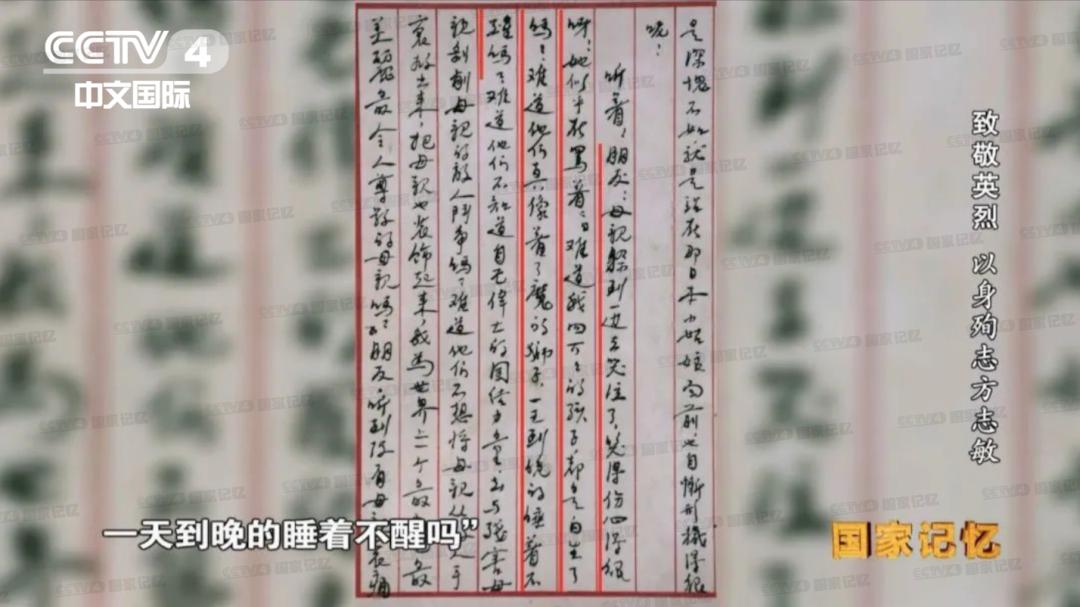 CCTV 4
中文国际
致敬英烈 以身殉志方志敏
是深愧不如就是站在那日本小姑娘面前也自惭形穢得很
呢！
听着！朋友！母親躲到一边去哭泣了，哭得伤心得很
呀！她似乎在罵着：“难道我四万万的孩子，都是白生了
嗎？难道他们真像着了魔的狮子，一天到晚的睡着不
醒嗎？难道他们不知道自己偉大的團结力量，去与殘害母
親剥削母親的敌人鬥争嗎？难道他们不想将母親从 手
裏救出来，把母親也装飾起来，成為世界上一个最 最
美麗最令人尊敬的母親嗎？”朋友，听到没有母 哀痛
一天到晚的睡着不醒吗”
国家记忆
CCTV4 国家记忆